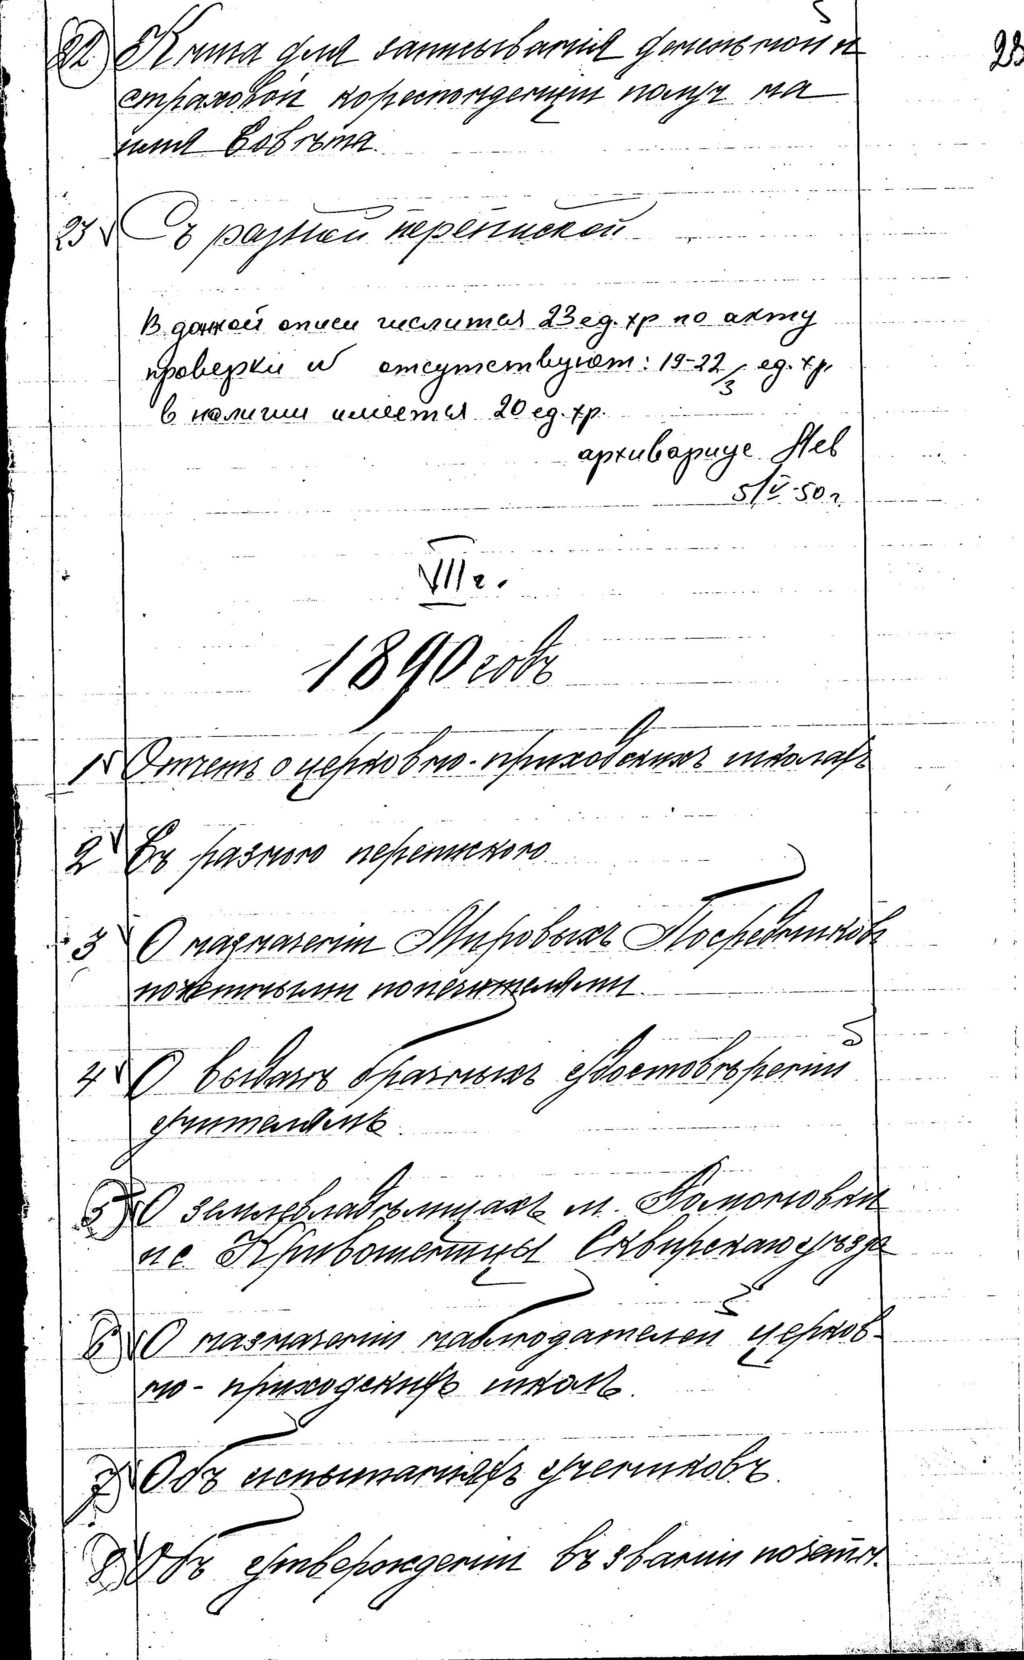 22 Книга для записыванія денежной и 23
страховой кореспонденции получ на
имя Совѣта.
23 Съ разной перепиской
В данной описи числится 23 ед. хр по акту
проверки № отсутствуют: 19-22/3 ед. хр.
в наличии имеется 20 ед. хр.
архивариус
5/V-50 г.
VII г.
1890 годъ
1 Отчетъ о церковно-приходскихъ школахъ
2 Съ разною перепискою
3 О назначеніи Мировыхъ Посредниковъ
почетными попечителями
4 О выдачѣ бразныхъ удостовѣреній
учителямъ.
5 О землевладѣльцахъ м. Романовки
и с Кривошеинцы Сквирскаго уѣзда
6 О назначеніи наблюдателей церков-
но-приходскихъ школъ.
7 Объ испытаніяхъ учениковъ.
8 Объ утвержденіи въ званіи почетн.